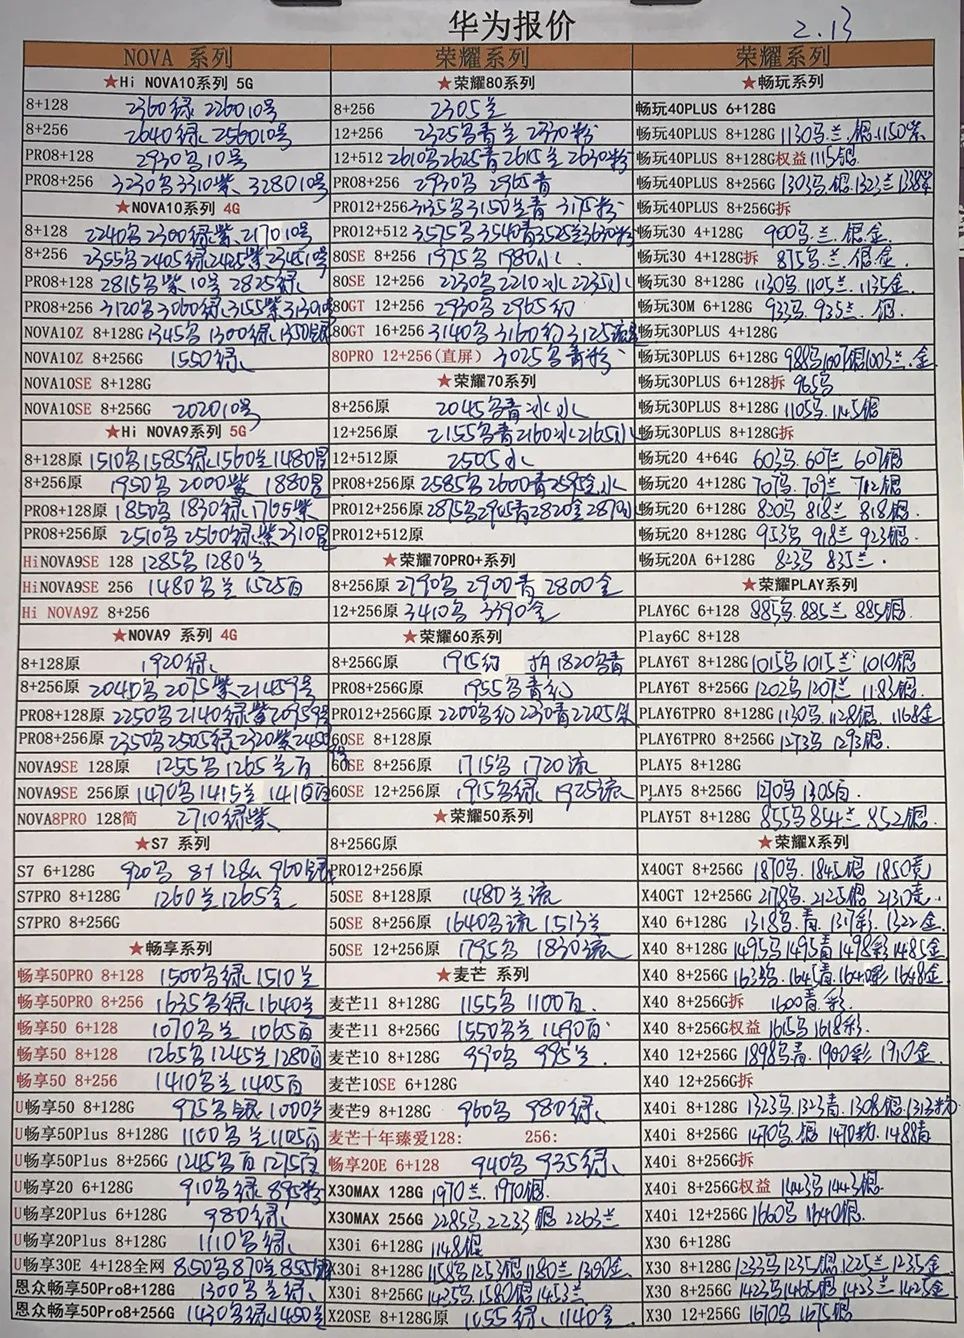 华为报价
2.13
NOVA 系列
★Hi NOVA10系列 5G
8+128 2360绿 2260 10号
8+256 2640绿 2560 10号
PRO8+128 2930乌 10号
PRO8+256 3230乌 3310紫 3280 10号
★NOVA10系列 4G
8+128 2240乌 2300绿紫 2170 10号
8+256 2355乌 2405绿 2425紫 2345 10号
PRO8+128 2815乌紫 10号 2825绿
PRO8+256 3120乌 3060绿 3155紫
NOVA10Z 8+128G 1345乌 1300绿 1350银
NOVA10Z 8+256G 1550绿
NOVA10SE 8+128G
NOVA10SE 8+256G 2020 10号
★Hi NOVA9系列 5G
8+128原 1510乌 1585绿 1560兰 1480冒
8+256原 1950乌 2000紫 1880冒
PRO8+128原 1850乌 1830绿 1765紫
PRO8+256原 2510乌 2560绿紫 2310冒
HiNOVA9SE 128 1285乌 1280兰
HiNOVA9SE 256 1480乌兰 1525百
Hi NOVA9Z 8+256
★NOVA9 系列 4G
8+128原 1920绿
8+256原 2040乌 2075紫 2145 9号
PRO8+128原 2250乌 2140绿紫 2095 9号
PRO8+256原 2350乌 2505绿 2320紫
NOVA9SE 128原 1255乌 1265兰百
NOVA9SE 256原 1470乌 1415兰 1410百
NOVA8PRO 128简 2710绿紫
★S7 系列
S7 6+128G 920乌 8+128G 960银
S7PRO 8+128G 1260兰 1265金
S7PRO 8+256G
★畅享系列
畅享50PRO 8+128 1500乌绿 1510兰
畅享50PRO 8+256 1635乌绿 1640兰
畅享50 6+128 1070乌兰 1065百
畅享50 8+128 1265乌 1245兰 1280百
畅享50 8+256 1410乌兰 1405百
U畅享50 8+128G 975乌银 1000兰
U畅享50Plus 8+128G 1100乌兰 1105百
U畅享50Plus 8+256G 1245乌百 1275百
U畅享20 6+128G 910乌绿 895粉
U畅享20Plus 6+128G 980绿
U畅享20Plus 8+128G 1110乌绿
U畅享30E 4+128全网 850乌 870兰 855银
恩众畅享50Pro8+128G 1300乌兰绿
恩众畅享50Pro8+256G 1430乌绿 1450兰
荣耀系列
★荣耀80系列
8+256 2305兰
12+256 2325乌青兰 2330粉
12+512 2610乌 2625青 2615兰 2630粉
PRO8+256 2930乌 2965青
PRO12+256 3135乌 3150兰青 3175粉
PRO12+512 3575乌 3540青 3525兰 3630粉
80SE 8+256 1975乌 1980水
80SE 12+256 2230乌 2210冰 2235水
80GT 12+256 2930乌 2965幻
80GT 16+256 3140乌 3160幻 3125流星
80PRO 12+256(直屏) 3025乌青粉
★荣耀70系列
8+256原 2045乌青冰水
12+256原 2155乌青 2160冰 2165水
12+512原 2505水
PRO8+256原 2585乌 2600青 2595金水
PRO12+256原 2875乌 2905青 2820金
PRO12+512原
★荣耀70PRO+系列
8+256原 2790乌 2900青 2800金
12+256原 3410乌 3390金
★荣耀60系列
8+256G原 1915幻 1820乌青
PRO8+256G原 1955乌青幻
PRO12+256G原 2200乌幻 2230青 2205朱
60SE 8+128原
60SE 8+256原 1715乌 1720流
60SE 12+256原 1915乌绿 1925流
★荣耀50系列
8+256G原
PRO12+256G原
50SE 8+128原 1480兰流
50SE 8+256原 1640乌流 1513兰
50SE 12+256原 1795乌 1830流
★麦芒 系列
麦芒11 8+128G 1155乌 1100百
麦芒11 8+256G 1550乌兰 1490百
麦芒10 8+128G 990乌 995兰
麦芒10SE 6+128G
麦芒9 8+128G 960乌 980绿
麦芒十年臻爱128: 256:
畅享20E 6+128 940乌 935绿
X30MAX 128G 1970兰 1970银
X30MAX 256G 2285乌 2233银 2263兰
X30i 6+128G 1148银
X30i 8+128G 1158乌 1253银 1180兰 1390金
X30i 8+256G 1425乌 1580银 1453兰
X20SE 8+128G原 1055绿 1140金
荣耀系列
★畅玩系列
畅玩40PLUS 6+128G
畅玩40PLUS 8+128G 1130乌.兰.银 1150紫
畅玩40PLUS 8+128G权益 1115银
畅玩40PLUS 8+256G 1303乌.银 1323兰 1338紫
畅玩40PLUS 8+256G拆
畅玩30 4+128G 900乌.兰.银.金
畅玩30 4+128G拆 875乌.兰.银.金
畅玩30 8+128G 1130乌 1105兰 1135金
畅玩30M 6+128G 933乌 935兰.银
畅玩30PLUS 4+128G
畅玩30PLUS 6+128G 988乌 1007银 1003兰.金
畅玩30PLUS 6+128拆 965乌
畅玩30PLUS 8+128G 1105乌 1145银
畅玩30PLUS 8+128G拆
畅玩20 4+64G 603乌 607兰 607银
畅玩20 4+128G 707乌 709兰 712银
畅玩20 6+128G 820乌 818兰 818银
畅玩20 8+128G 953乌 918兰 923银
畅玩20A 6+128G 823乌 835兰
★荣耀PLAY系列
PLAY6C 6+128 885乌 885兰 885银
Play6C 8+128
PLAY6T 8+128G 1015乌 1015兰 1010银
PLAY6T 8+256G 1202乌 1207兰 1183银
PLAY6TPRO 8+128G 1130乌 1128银 1168金
PLAY6TPRO 8+256G 1273乌 1293银
PLAY5 8+128G
PLAY5 8+256G 1270乌 1305百
PLAY5T 8+128G 855乌 854兰 852银
★荣耀X系列
X40GT 8+256G 1870乌 1845银 1850竞
X40GT 12+256G 2178乌 2125银 2130竞
X40 6+128G 1318乌.青 1317彩 1322金
X40 8+128G 1495乌 1495青 1498彩 1485金
X40 8+256G 1635乌 1645青 1640彩 1648金
X40 8+256G拆 1600青.彩
X40 8+256G权益 1615乌 1618彩
X40 12+256G 1898乌青 1900彩 1910金
X40 12+256G拆
X40i 8+128G 1323乌 1323青 1308银 1313粉
X40i 8+256G 1470乌.银 1470粉 1488青
X40i 8+256G拆
X40i 8+256G权益 1443乌 1443银
X40i 12+256G 1660乌 1640银
X30 6+128G
X30 8+128G 1233乌 1235银 1225兰 1235金
X30 8+256G 1423乌 1465银 1423兰 1425金
X30 12+256G 1670乌 1675银